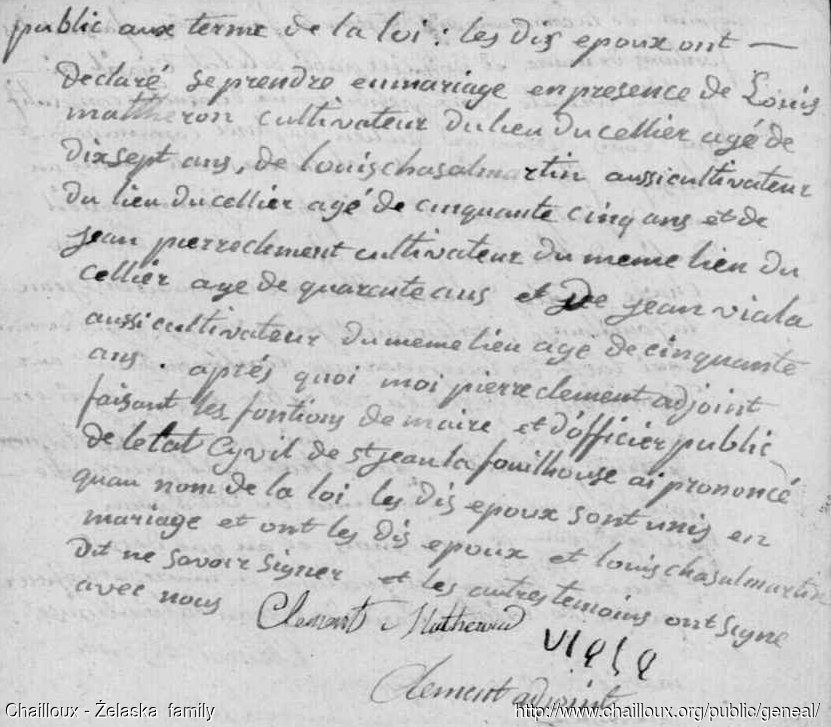 public aux terme de la loi : les dis epoux ont —
declaré se prendre enmariage en presence de Louis
matheron cultivateur du lieu du cellier agé de
dixsept ans, de louis chasalmartin aussi cultivateur
du lieu du cellier agé de cinquante cinq ans et de
jean pierre clement cultivateur du meme lieu du
cellier age de quarente ans et de jean viala
aussi cultivateur du meme lieu agé de cinquante
ans. aprés quoi moi pierre clement adjoint
faisant les fontions de maire et d'officier public
de letat Cyvil de st jean la fouilhouse ai prononcé
quau nom de la loi les dis epoux sont unis en
mariage et ont les dis epoux et louis chasalmartin
dit ne savoir signer et les autres temoins ont signe
avec nous Clement Matheron
viala
Clement adjoint
Chailloux - Żelaska family http://www.chailloux.org/public/geneal/